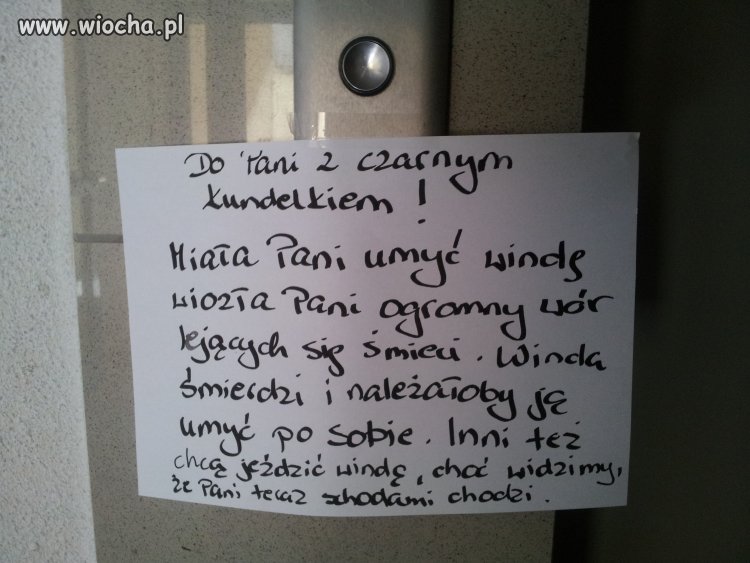 www.wiocha.pl
Do Pani z czarnym
kundelkiem!
Miała Pani umyć windę
wiozła Pani ogromny wór
lejących się śmieci. Winda
śmierdzi i należałoby ją
umyć po sobie. Inni też
chcą jeździć windę, choć widzimy,
że Pani teraz schodami chodzi.